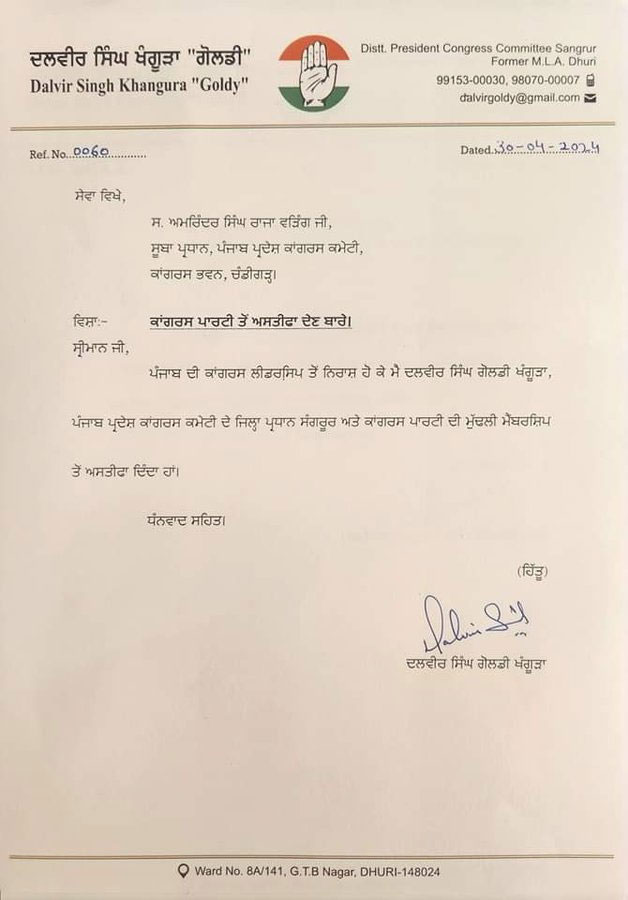 ਦਲਵੀਰ ਸਿੰਘ ਖੰਗੂੜਾ "ਗੋਲਡੀ"
Dalvir Singh Khangura "Goldy"
Distt. President Congress Committee Sangrur
Former M.L.A. Dhuri
99153-00030, 98070-00007
dalvirgoldy@gmail.com
Ref. No...0060.............
Dated..30-04-2024
ਸੇਵਾ ਵਿਖੇ,
ਸ. ਅਮਰਿੰਦਰ ਸਿੰਘ ਰਾਜਾ ਵੜਿੰਗ ਜੀ,
ਸੂਬਾ ਪ੍ਰਧਾਨ, ਪੰਜਾਬ ਪ੍ਰਦੇਸ਼ ਕਾਂਗਰਸ ਕਮੇਟੀ,
ਕਾਂਗਰਸ ਭਵਨ, ਚੰਡੀਗੜ੍ਹ।
ਵਿਸ਼ਾ:- ਕਾਂਗਰਸ ਪਾਰਟੀ ਤੋਂ ਅਸਤੀਫਾ ਦੇਣ ਬਾਰੇ।
ਸ੍ਰੀਮਾਨ ਜੀ,
ਪੰਜਾਬ ਦੀ ਕਾਂਗਰਸ ਲੀਡਰਸ਼ਿਪ ਤੋਂ ਨਿਰਾਸ਼ ਹੋ ਕੇ ਮੈਂ ਦਲਵੀਰ ਸਿੰਘ ਗੋਲਡੀ ਖੰਗੂੜਾ,
ਪੰਜਾਬ ਪ੍ਰਦੇਸ਼ ਕਾਂਗਰਸ ਕਮੇਟੀ ਦੇ ਜਿਲ੍ਹਾ ਪ੍ਰਧਾਨ ਸੰਗਰੂਰ ਅਤੇ ਕਾਂਗਰਸ ਪਾਰਟੀ ਦੀ ਮੁੱਢਲੀ ਮੈਂਬਰਸ਼ਿਪ
ਤੋਂ ਅਸਤੀਫਾ ਦਿੰਦਾ ਹਾਂ।
ਧੰਨਵਾਦ ਸਹਿਤ।
(ਹਿੱਤੂ)
Dalvir Singh
ਦਲਵੀਰ ਸਿੰਘ ਗੋਲਡੀ ਖੰਗੂੜਾ
Ward No. 8A/141, G.T.B Nagar, DHURI-148024